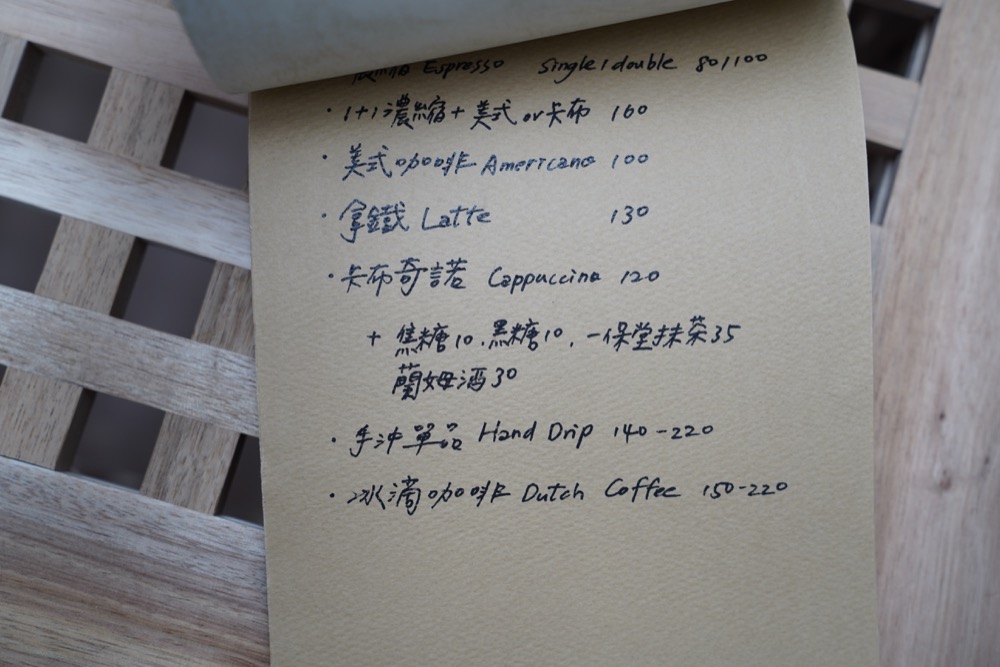 濃縮 Espresso single/double 80/100
· 1+1濃縮+美式or卡布 160
· 美式咖啡 Americano 100
· 拿鐵 Latte 130
· 卡布奇諾 Cappuccino 120
+ 焦糖10.黑糖10.一保堂抹茶35
蘭姆酒30
· 手沖單品 Hand Drip 140-220
· 冰滴咖啡 Dutch Coffee 150-220